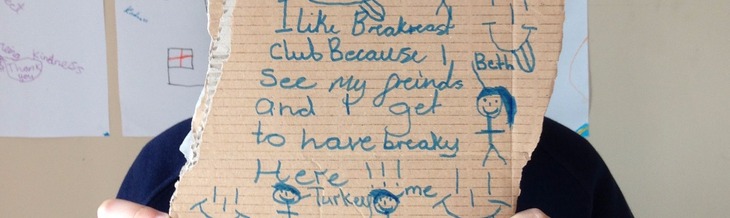 I like Breakfast
club Because I
see my freinds
and I get
to have breaky
Here !!!
Beth
Turkey
me
kindness
Thank
you